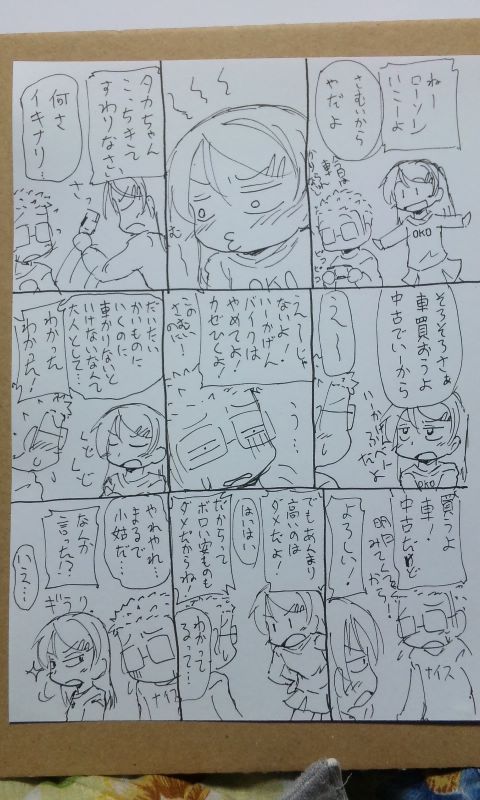 ねー
ローソン
いこーよ
さむいから
やだよ
今日は
車
かりらんないし
OKO
む
OKO
タカちゃん
こっちきて
すわりなさい
何さ
イキナリ…
さっ
そろそろさぁ
車買おうよ
中古でいーから
OKO
えー
えーじゃ
ないよ!
いいかげん
バイクは
やめてよ!
カゼひくよ!
このさむいのに!
う…
だいたい
かいものに
いくのに
車かりないと
いけないなんて
大人として…
くど
くど
わかった
わかった!
買うよ
車!
中古だけど
明日
みてくから!
ナイス
よろしい!
でもあんまり
高いのは
ダメだよ
はいはい
だからって
ボロい安ものも
ダメだからね!
わかって
るって…
やれやれ…
まるで
小姑だ…
ナイス
なんか
言った!?
ギラリ
いえ…